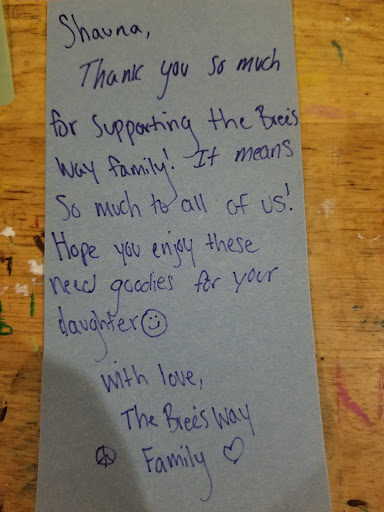 Shauna,
Thank you so much
for supporting the Bree's
Way family! It means
So much to all of us!
Hope you enjoy these
new goodies for your
daughter☺
with love,
The Bree's Way
☮ Family ♡